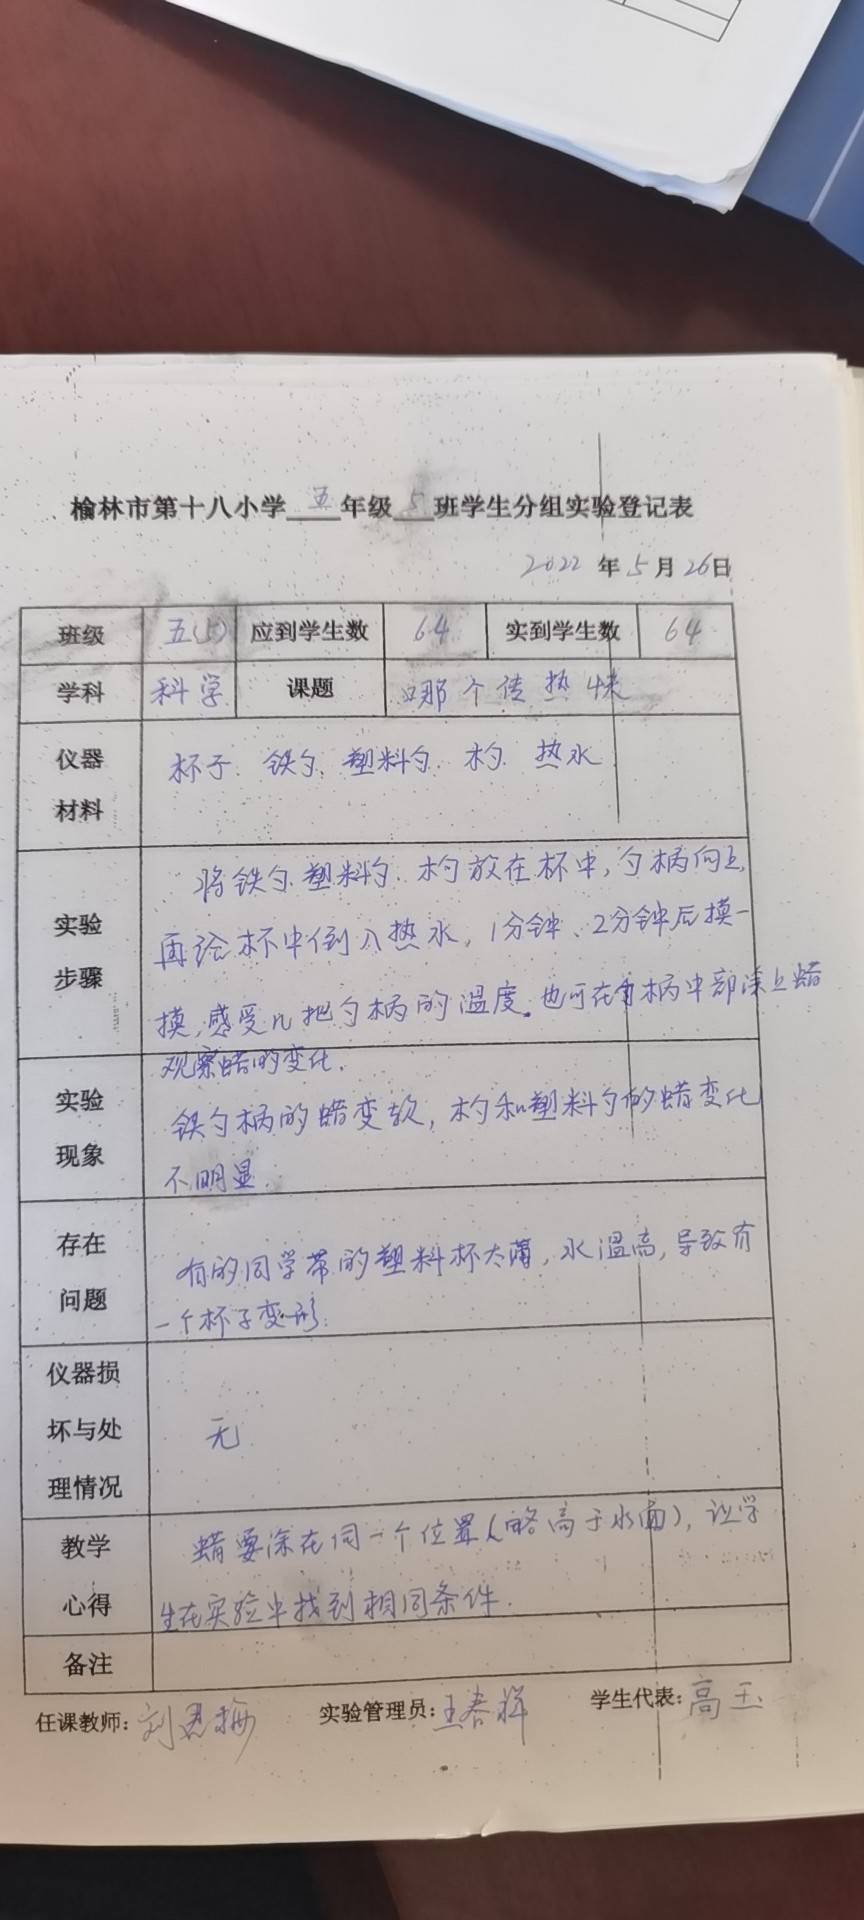 榆林市第十八小学 五 年级 5 班学生分组实验登记表
2022 年 5 月 26日
班级 五(5) 应到学生数 64 实到学生数 64
学科 科学 课题 哪个传热快
仪器材料 杯子. 铁勺. 塑料勺. 木勺. 热水
实验步骤 将铁勺. 塑料勺. 木勺放在杯中, 勺柄向上,
再给杯中倒入热水, 1分钟、2分钟后摸一
摸, 感受几把勺柄的温度。也可在勺柄中部涂上蜡
观察蜡的变化.
实验现象 铁勺柄的蜡变软, 木勺和塑料勺的蜡变化
不明显.
存在问题 有的同学带的塑料杯太薄, 水温高, 导致有
一个杯子变形.
仪器损坏与处理情况 无
教学心得 蜡要涂在同一个位置(略高于水面), 让学
生在实验中找到相同条件.
备注
任课教师: 刘 梅 实验管理员: 王春祥 学生代表: 高玉